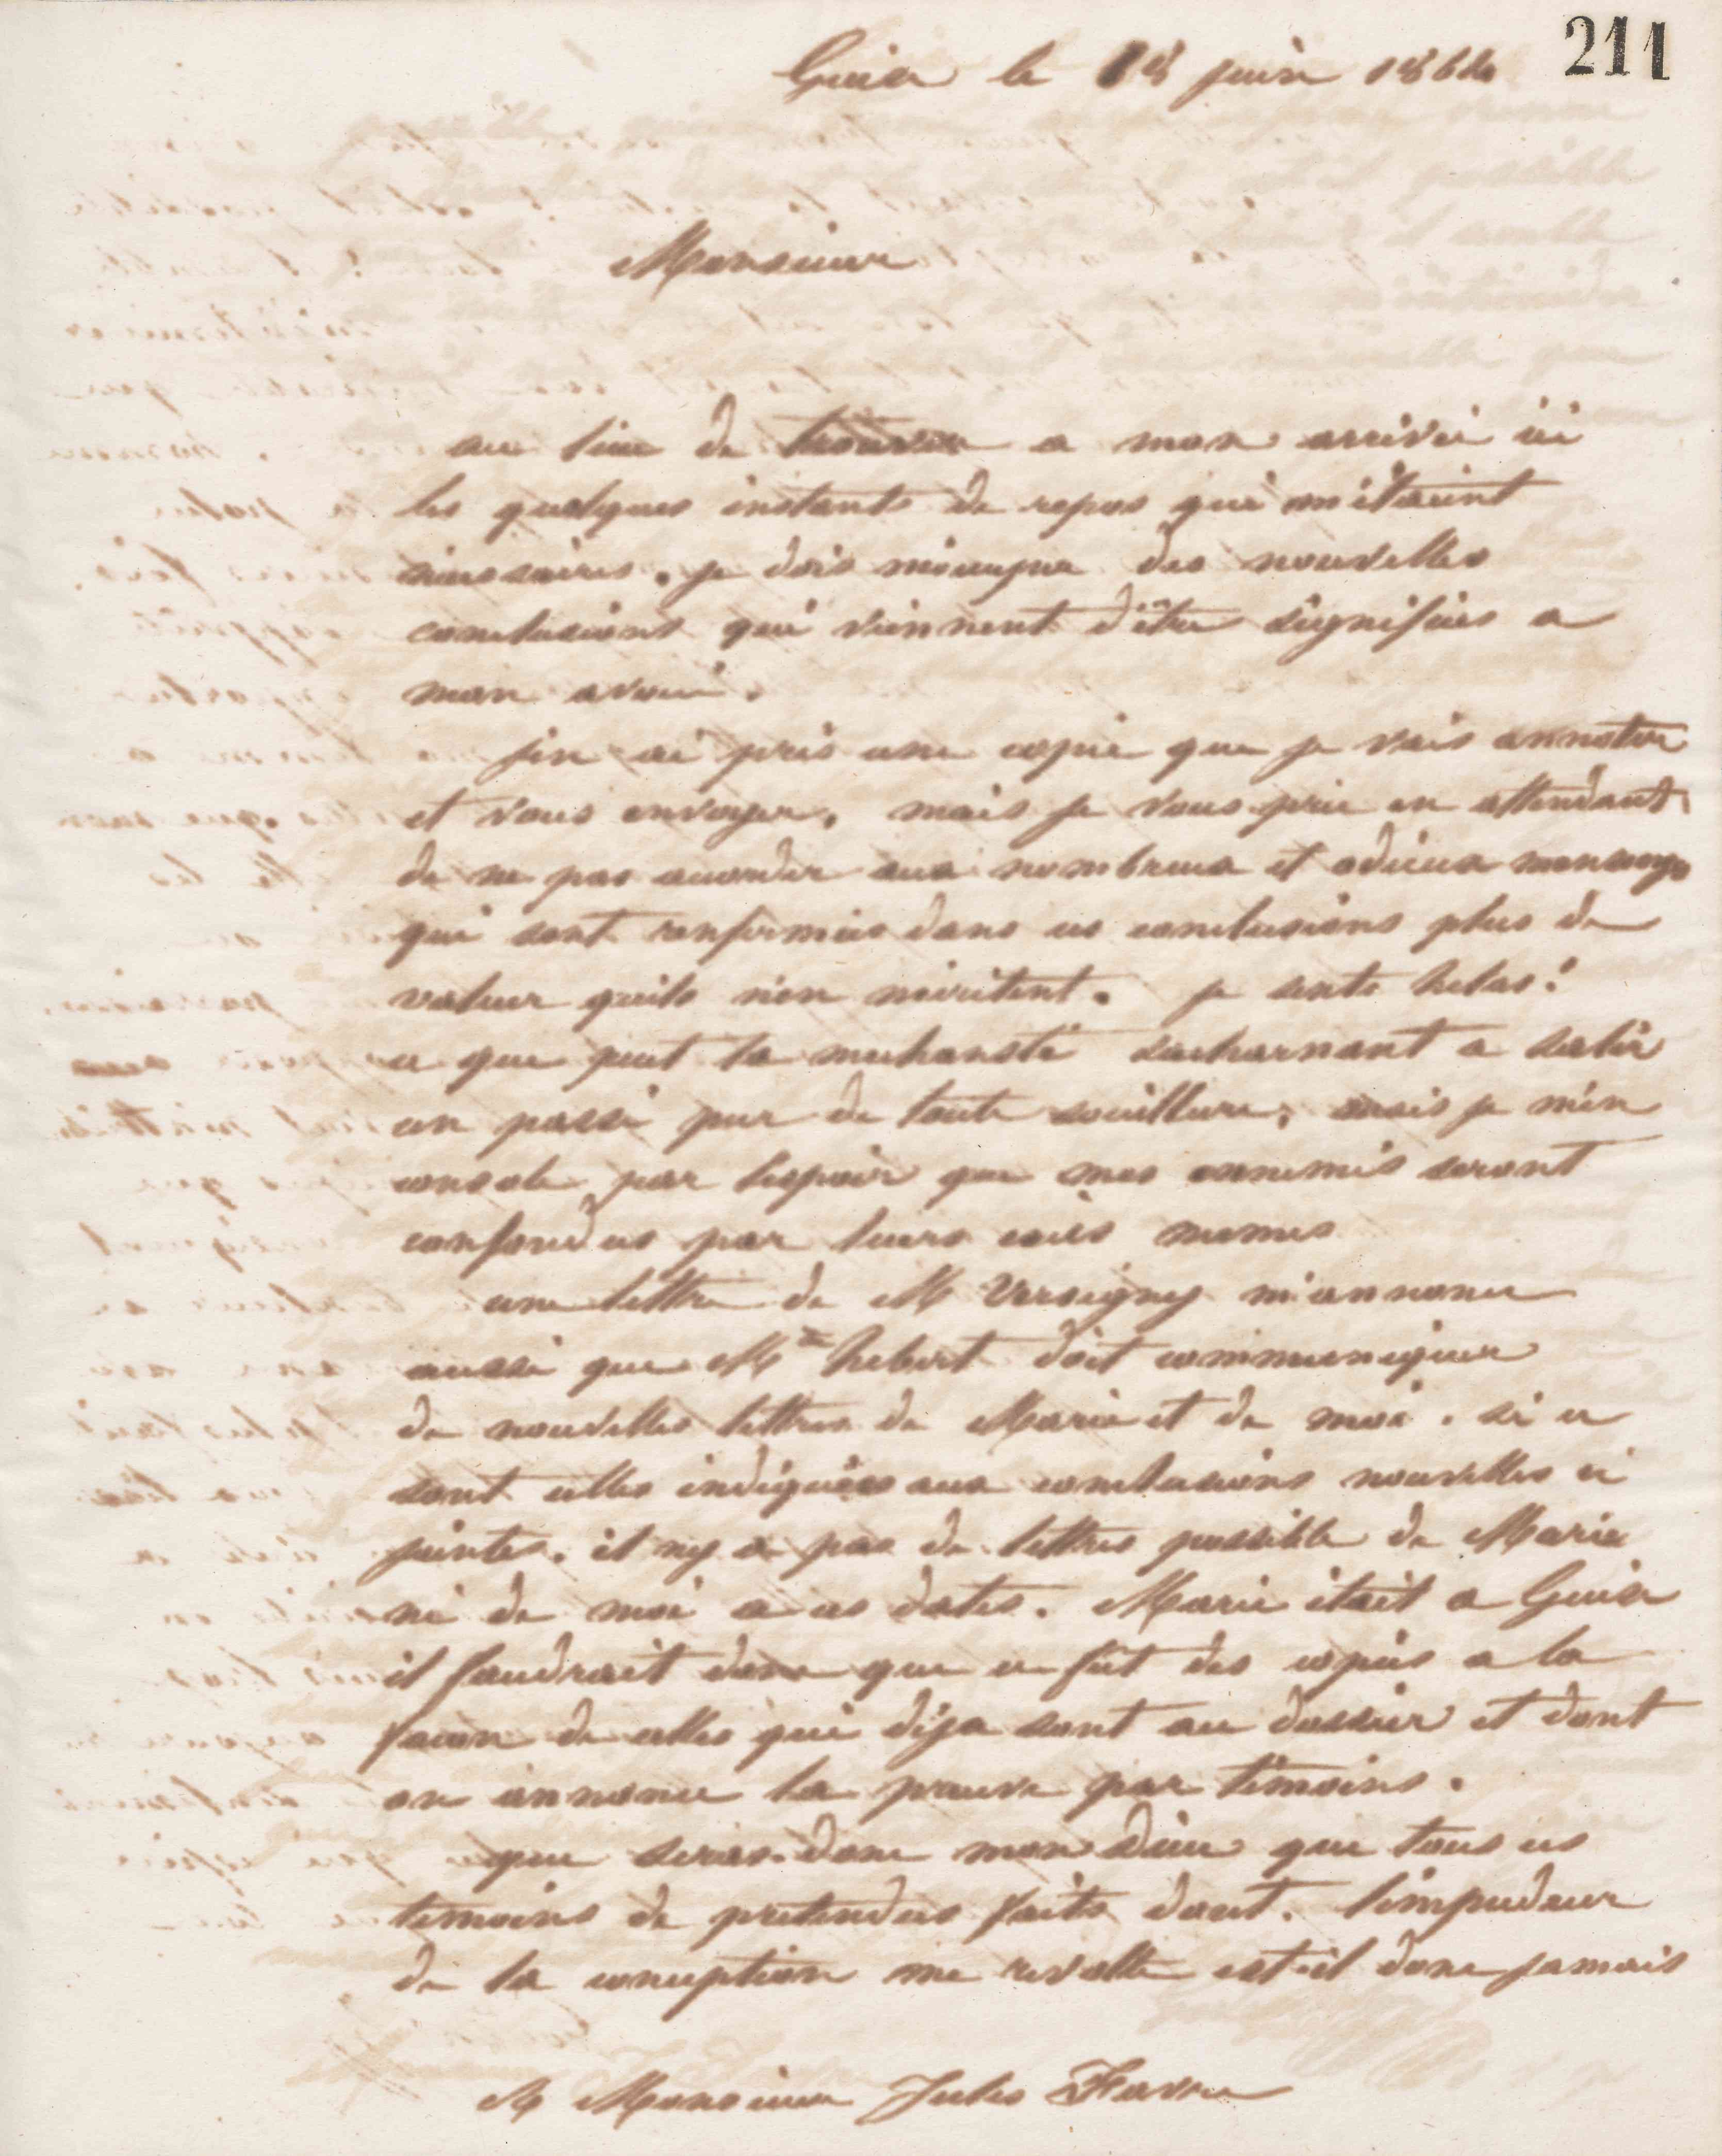 211
Guise le 18 juin 1864
Monsieur
au lieu de trouver a mon arrivée ici
les quelques instants de repos qui m'étaient
nécessaires. je dois m'occuper des nouvelles
conclusions qui viennent d'être signifiées a
mon avoué.
j'en ai pris une copie que je vais annoter
et vous envoyer. mais je vous prie en attendant
de ne pas accorder aux nombreux et odieux mensonges
qui sont renfermés dans ces conclusions plus de
valeur quils n'en méritent. je sents helas!
ce que peut la mechansté sacharnant a salir
un passé pur de toute souillure, mais je m'en
console par l'espoir que mes ennemis seront
confondus par leurs excès memes
une lettre de M Versigny m'annonce
aussi que Me hebert doit communiquer
de nouvelles lettres de Marie et de moi. si ce
sont celles indiquées aux conclusions nouvelles ci
jointes. il ny a pas de lettres possible de Marie
ni de moi a ces dates. Marie était a Guise
il faudrait donc que ce fût des copies a la
facon de celles qui déja sont au dossier et dont
on annonce la preuve par témoins.
que seras donc mon dieu que tous ces
temoins de pretendus faits dont. l'impudeur
de la conception me revolte est-il donc jamais
A Monsieur Jules Favre